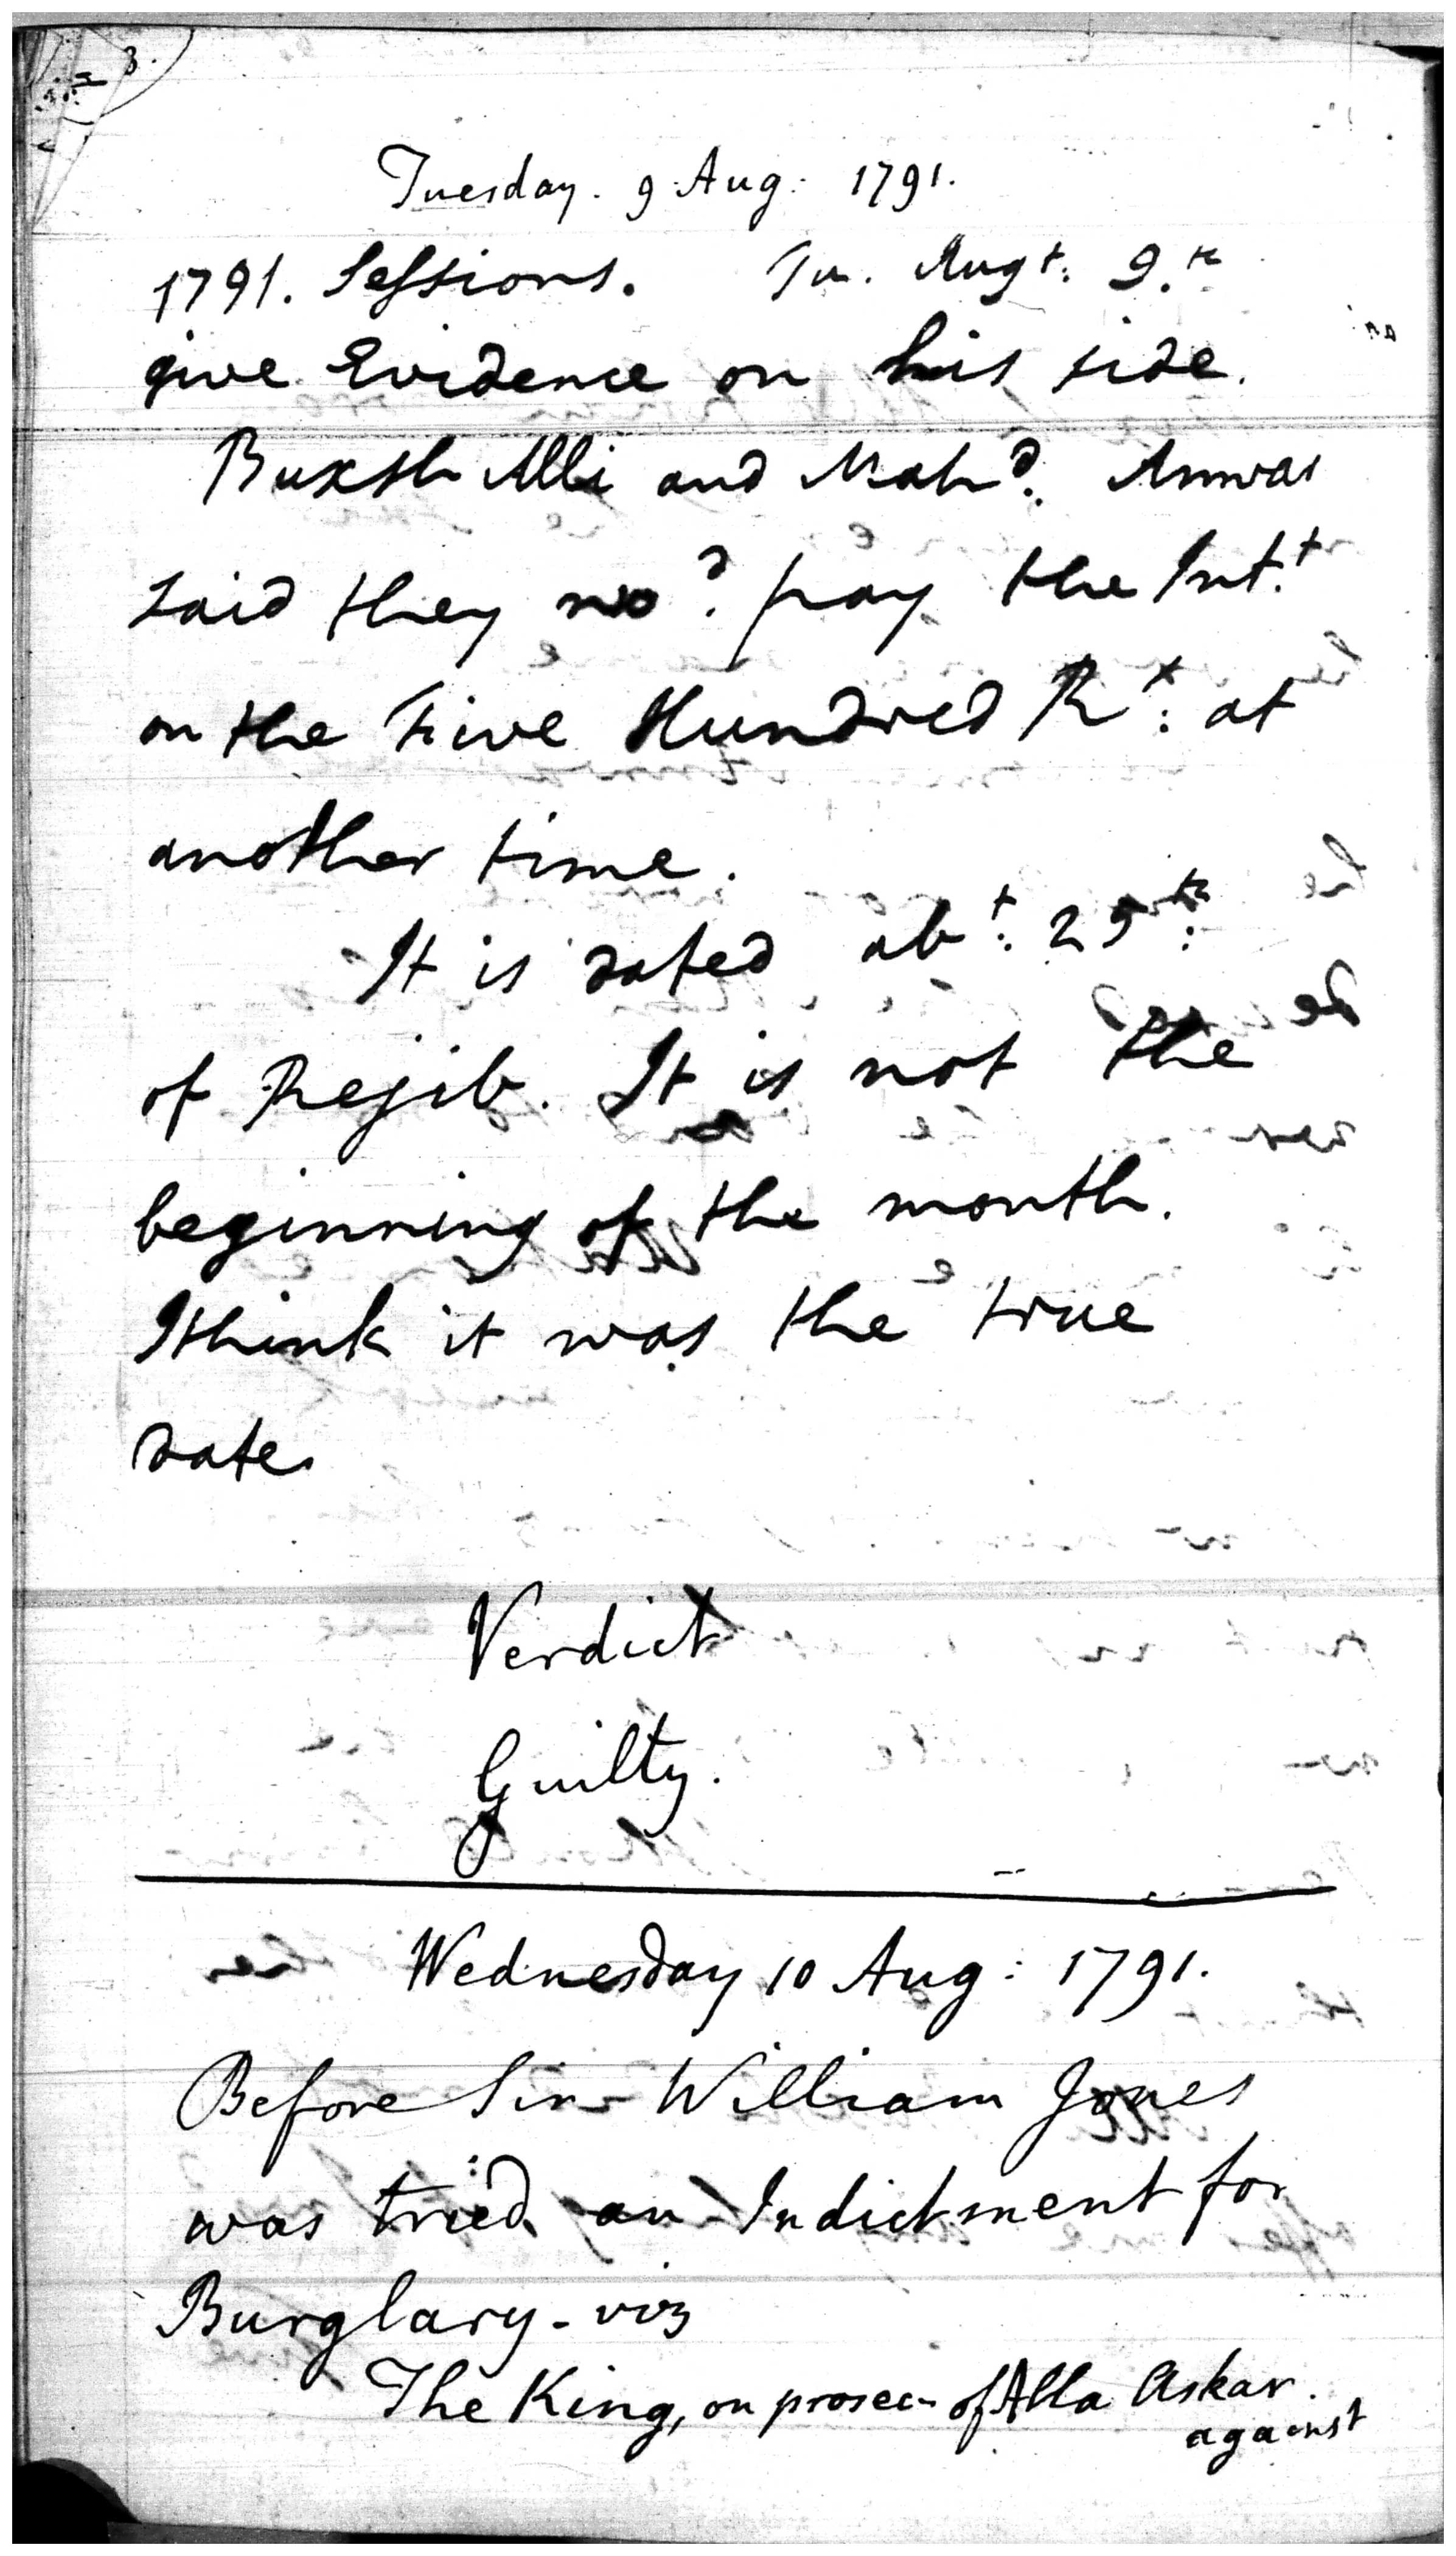 3.
Tuesday. 9 Aug: 1791.
1791. Sessions. Tu. Augt: 9.th
give Evidence on his side.
Buxsh Alli and Mahd: Anwar
said they wod: pay the Int.t
on the five Hundred Rs: at
another time.
It is dated abt: 25th:
of Rejib. It is not the
beginning of the month.
I think it was the true
date.
Verdict
Guilty.
Wednesday 10 Aug: 1791.
Before Sir William Jones
was tried an Indictment for
Burglary - viz
The King, on prosecn of Alla Askar.
against